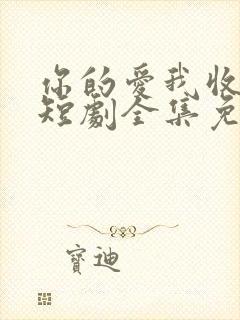 你的爱我收
短劇全集免
寶迪